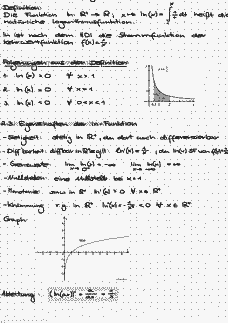 Definition:
Die Funktion ln: ℝ⁺ → ℝ, x ↦ ln(x) = ∫ 1/t dt heißt die
natürliche Logarithmusfunktion.
ln ist nach dem HDI die Stammfunktion der
Kehrwertfunktion f(x) = 1/x.
Folgerungen aus der Definition:
1. ln(x) = 0 ∀ x = 1
2. ln(x) > 0 ∀ x > 1
3. ln(x) < 0 ∀ 0 < x < 1
2.3. Eigenschaften der ln-Funktion
- Stetigkeit: stetig in ℝ⁺, da dort auch differenzierbar
- Diff'barkeit: diffbar in ℝ⁺ mit ln'(x) = 1/x, da ln(x) SF von
- Grenzwerte: lim ln(x) = -∞ lim ln(x) = +∞
- Nullstellen: eine Nullstelle bei x = 1
- Monotonie: sms in ℝ⁺ ln'(x) > 0 ∀ x ∈ ℝ⁺
- Krümmung: r.g. in ℝ⁺ ln''(x) = -1/x² < 0 ∀ x ∈ ℝ⁺
Graph:
Ableitung: